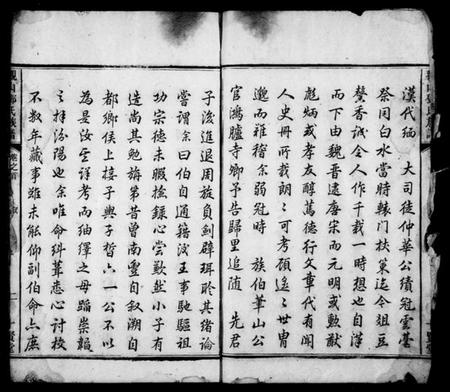 漢代緬　大司徒仲華公績冠雲臺
祭岡白水當時轅門扶策迄今俎豆
馨香誠令人作千載一時想也自漢
而下由魏晉逮唐宋而元明或勲猷
彪炳或孝友醇篤德行文章代有聞
人史冊所載朗〻可考頋邈〻世冑
邈而雍稽余弱冠時　族伯華山公
官鴻臚寺卿予告歸里追随　先君
子後進退周旋負劍辟珥聆其緒論
嘗謂余曰伯自通籍汲王事馳驅祖
功宗德未暇搃録心嘗歉然小子有
造尚其勉旃第昔曾南豐自叙溯自
都鄉侯上接子輿子晳六一公不以
為是汝云詳考而䌷繹之毋蹈崇韜
之拜汾陽也余唯命糾葺悉心討校
不数年蕆事雖未能仰副伯命亼庶